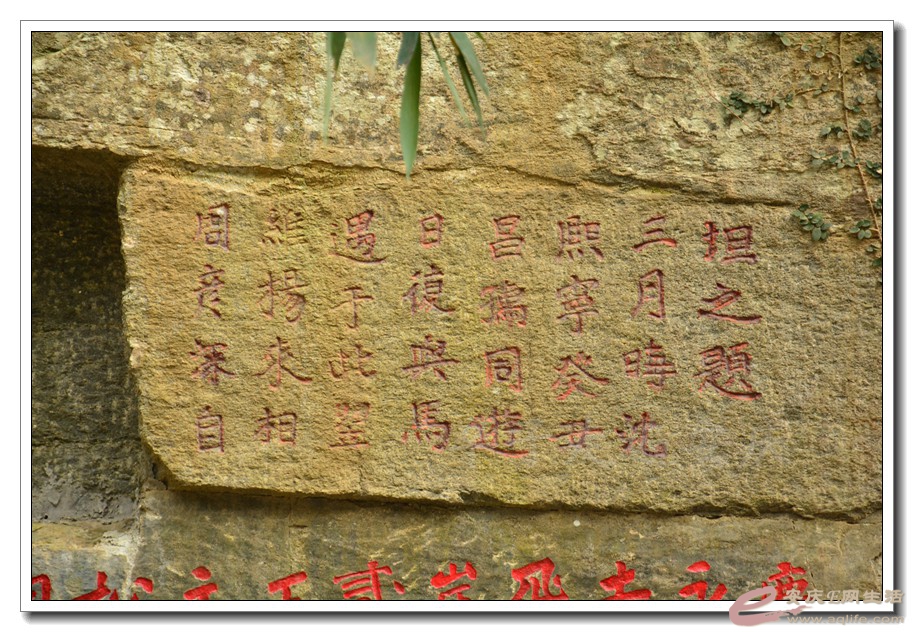 周彦深自
維揚來相
遇于此翌
日復與馬
昌同遊
熙寧癸丑
三月時沈
坦之題
安庆E网生活
www.aqlife.com